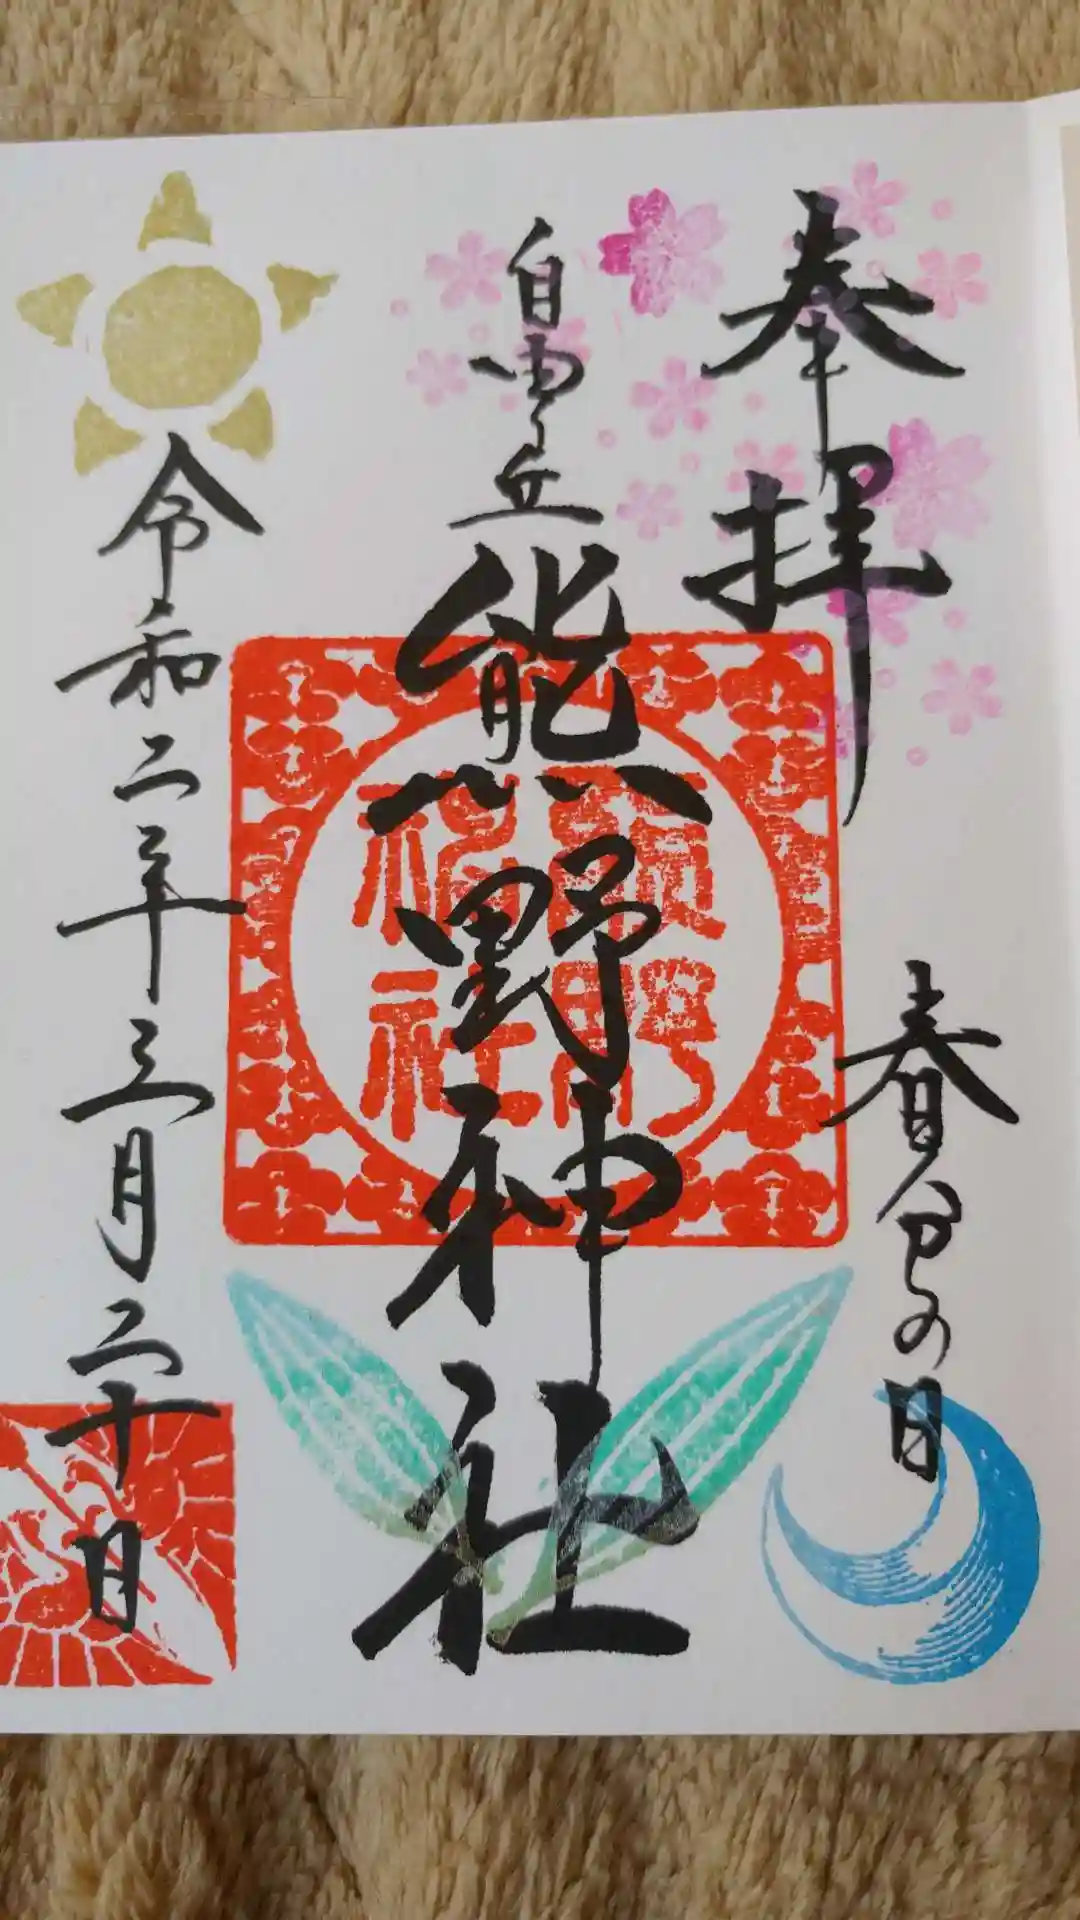 奉拝
春分の日
自由ヶ丘
熊野神社
令和二年三月二十日